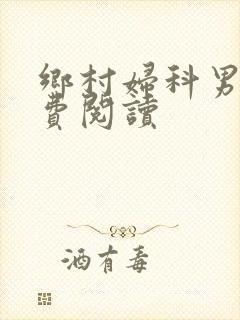 鄉村婦科男
費閱讀
酒有毒